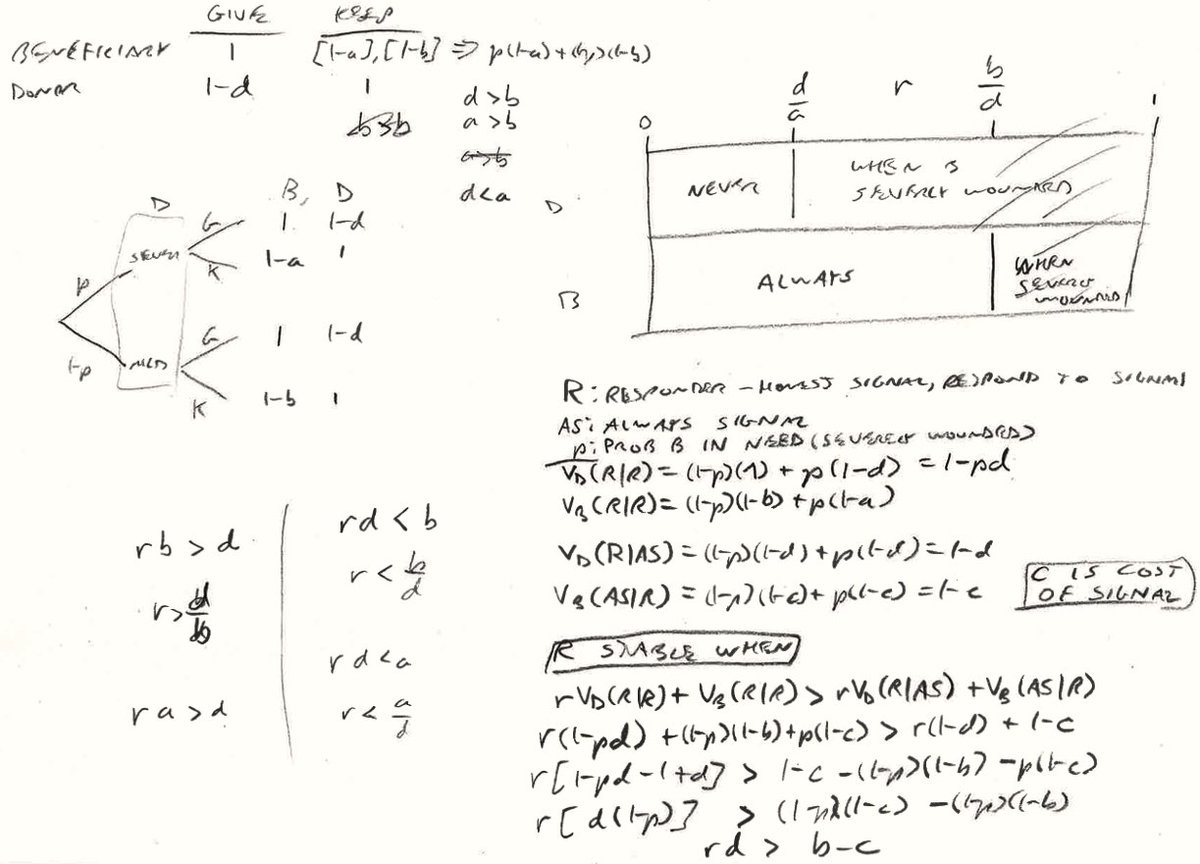 GIVE KEEP
BENEFICIARY 1 [1-a],[1-b] ⇒ p(1-a)+(1-p)(1-b)
DONOR 1-d 1
d > b
a > b
a > b
d < a
B, D
D
SEVERE
G 1 1-d
K 1-a 1
p
1-p
MILD
G 1 1-d
K 1-b 1
0 d/a r b/d 1
D NEVER WHEN B SEVERELY WOUNDED
B ALWAYS WHEN SEVERELY WOUNDED
R: RESPONDER - HONEST SIGNAL, RESPOND TO SIGNAL
AS: ALWAYS SIGNAL
p: PROB B IN NEED (SEVERELY WOUNDED)
V_D(R|R) = (1-p)(1) + p(1-d) = 1-pd
V_B(R|R) = (1-p)(1-b) + p(1-a)
V_D(R|AS) = (1-p)(1-d) + p(1-d) = 1-d
V_B(AS|R) = (1-p)(1-c) + p(1-c) = 1-c
C IS COST
OF SIGNAL
R STABLE WHEN
rV_D(R|R) + V_B(R|R) > rV_D(R|AS) + V_B(AS|R)
r(1-pd) + (1-p)(1-b) + p(1-c) > r(1-d) + 1-c
r[1-pd-1+d] > 1-c -(1-p)(1-b) -p(1-c)
r[d(1-p)] > (1-p)(1-c) -(1-p)(1-b)
rd > b-c
rb > d
r > d/b
ra > d
rd < b
r < b/d
rd < a
r < a/d